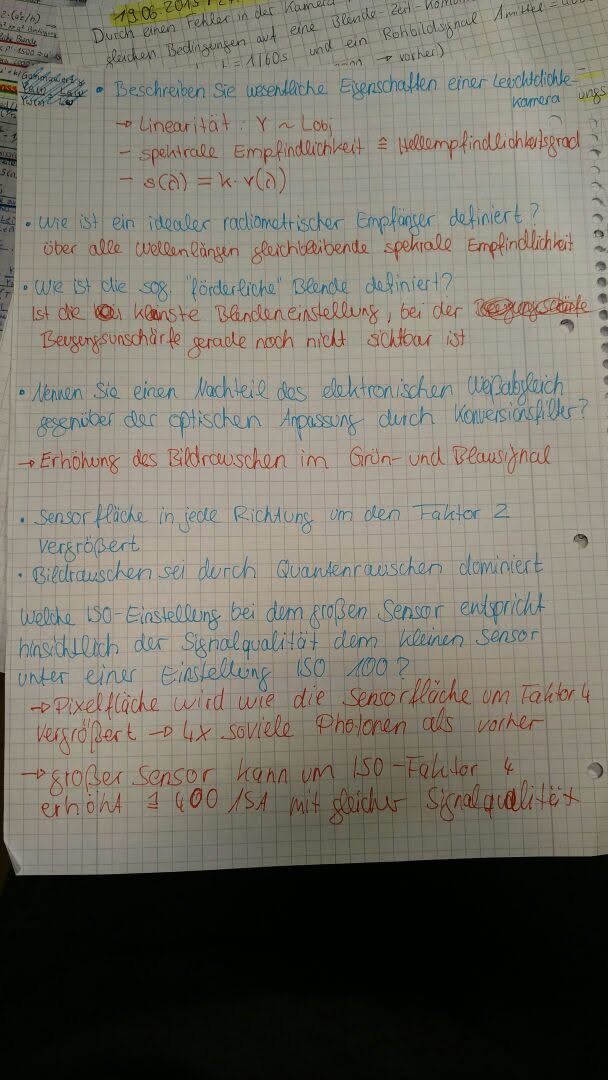 19.06.2015
Durch einen Fehler in der Kamera
auf eine Blende-Zeit-
gleichen Bedingungen
= 1/60s und ein Rohbildsignal
→ vorher)
• Beschreiben Sie wesentliche Eigenschaften einer Leuchtdichte-
kamera
ungs
→ Linearität: Y ~ Lobj
- spektrale Empfindlichkeit ≙ Hellempfindlichkeitsgrad
- s(λ) = k · v(λ)
• Wie ist ein idealer radiometrischer Empfänger definiert?
über alle Wellenlängen gleichbleibende spekrale Empfindlichkeit
• Wie ist die sog. "förderliche" Blende definiert?
Ist die kleinste Blendeneinstellung, bei der
Beugungsunschärfe gerade noch nicht sichtbar ist
• Nennen Sie einen Nachteil des elektronischen Weßabgleich
gegenüber der optischen Anpassung durch Konversionsfilter?
→ Erhöhung des Bildrauschen im Grün- und Blausignal
• Sensorfläche in jede Richtung um den Faktor 2
vergrößert
• Bildrauschen sei durch Quantenrauschen dominiert
Welche ISO-Einstellung bei dem großen Sensor entspricht
hinsichtlich der Signalqualität dem kleinen Sensor
unter einer Einstellung ISO 100?
→ Pixelfläche wird wie die Sensorfläche um Faktor 4
vergrößert → 4x soviele Photonen als vorher
→ großer Sensor kann um ISO-Faktor 4
erhöht ≙ 400 ISA mit gleicher Signalqualität